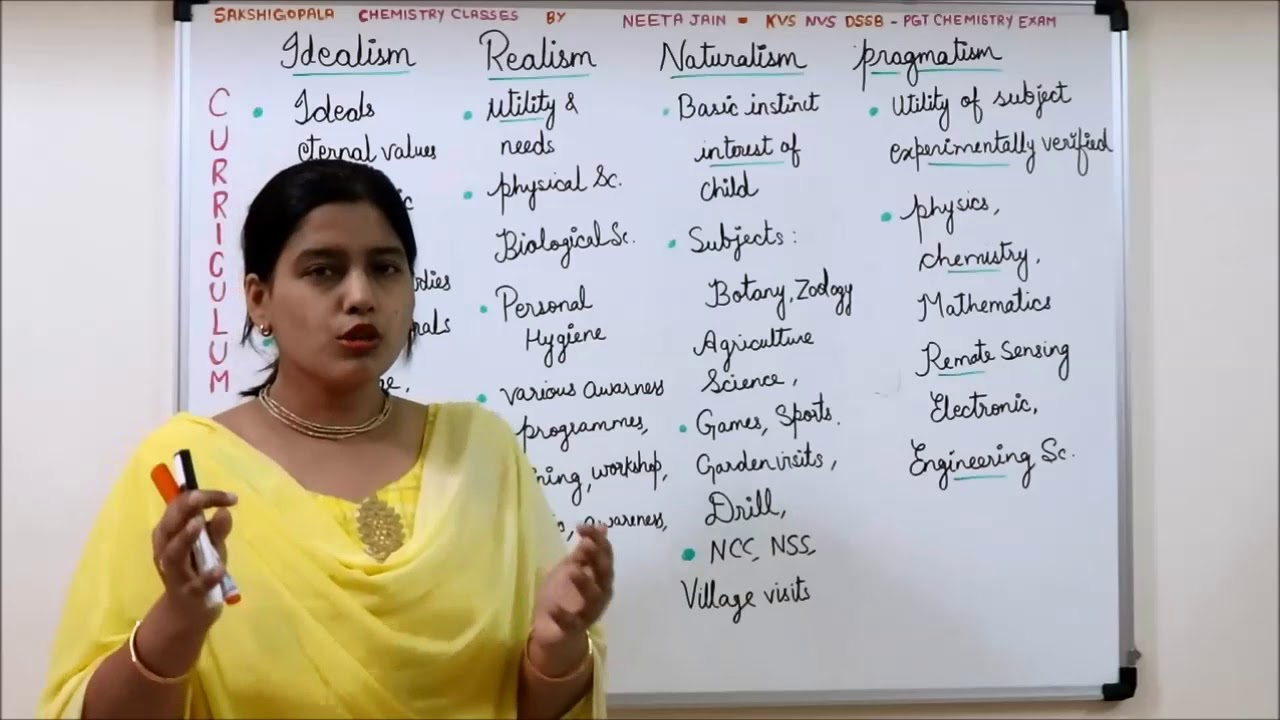 SAKSHIGOPALA CHEMISTRY CLASSES BY NEETA JAIN - KVS NVS DSSB - PGT CHEMISTRY EXAM
CURRICULUM
Idealism
Ideals
eternal values
Realism
Utility &
needs
physical Sc.
Biological Sc.
Personal
Hygiene
various awarness
programmes,
workshop,
awareness,
Naturalism
Basic instinct
interest of
child
Subjects:
Botany, Zoology
Agriculture
Science,
Games, Sports.
Garden visits,
Drill,
NCC, NSS,
Village visits
pragmatism
Utility of subject
experimentally verified
physics,
chemistry,
Mathematics
Remote Sensing
Electronic,
Engineering Sc.